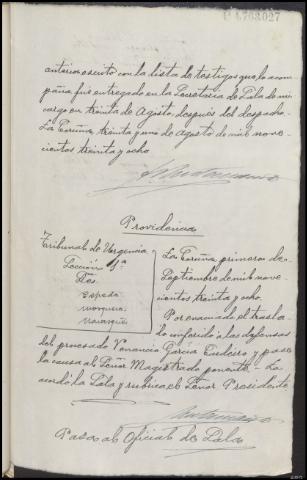 anterior escrito con la lista de testigos que lo acom-
paña fué entregado en la Secretaria de Sala de mi
cargo en treinta de Agosto, despues del despacho.
La Coruña, treinta y uno de Agosto de mil nove-
cientos treinta y ocho.
Providencia
Tribunal de Urgencia
Sección 1ª
Sres.
Espada
Mosquera
La Coruña primero de
Septiembre de mil nove-
cientos treinta y ocho.
Por evacuado el trasla-
do conferido a las defensas
del procesado Venancio García Eudeiro y pase
la causa al Señor Magistrado ponente. Lo
acordó la Sala y rubrica el Señor Presidente
Pasa al Oficial de Sala